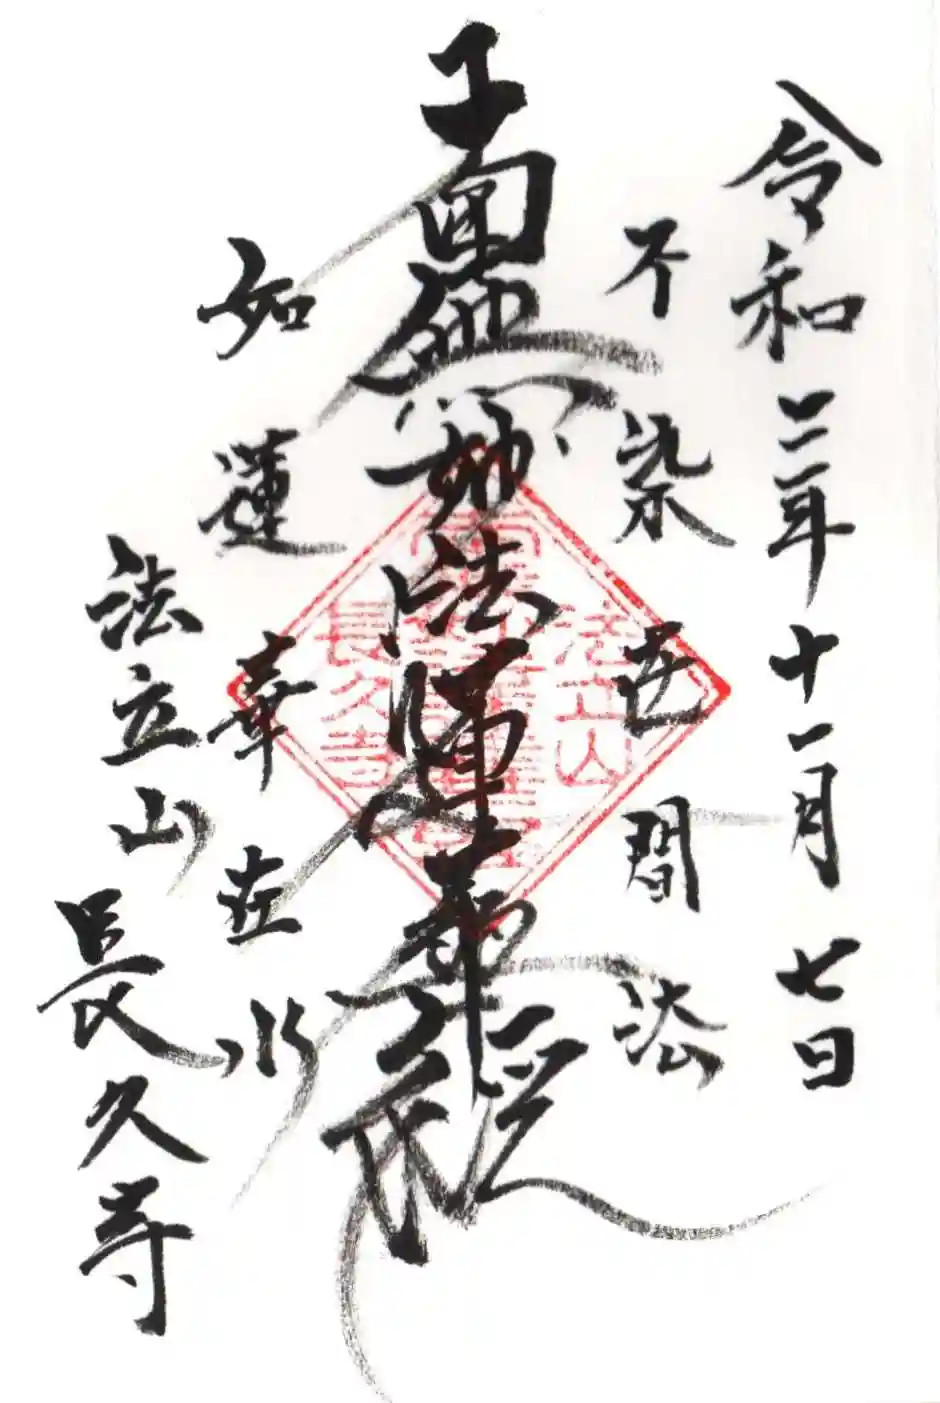 令和二年十一月七日
不染世間法
南無妙法蓮華経
如蓮華在水
法立山
長久寺
法立山
長久寺